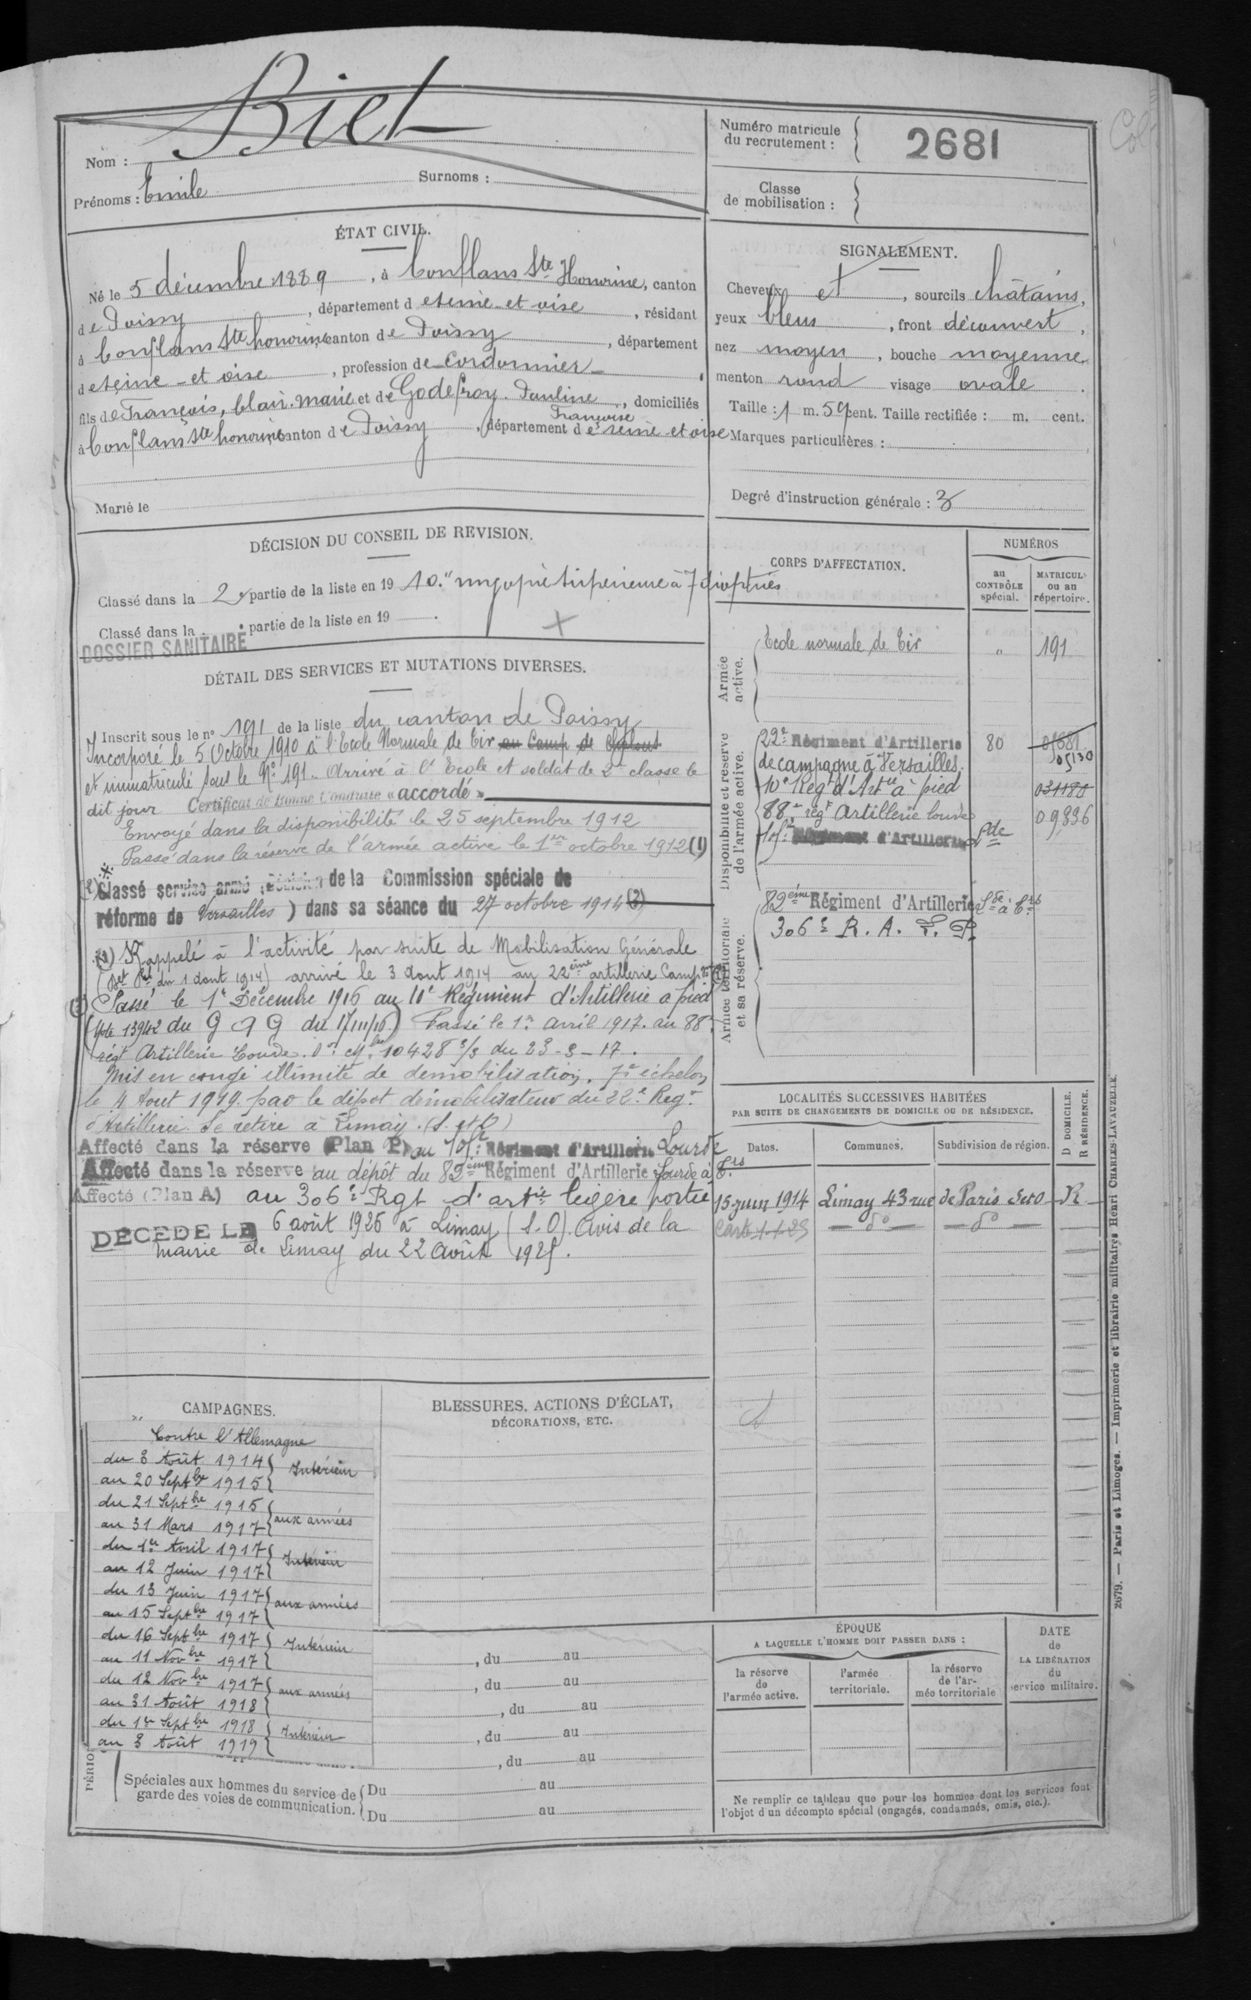 Nom : Biet
Prénoms : Emile Surnoms :
Numéro matricule
du recrutement : 2681
Classe
de mobilisation :
ÉTAT CIVIL.
Né le 5 décembre 1889, à Conflans Ste Honorine, canton
de Poissy, département de seine-et-oise, résidant
à Conflans Ste honorine canton de Poissy, département
de seine-et oise, profession de cordonnier
fils de François, Clair-Marie et de Godefroy Pauline Françoise, domiciliés
à Conflans Ste honorine canton de Poissy, département de seine et oise
Marié le
SIGNALEMENT.
Cheveux et, sourcils châtains,
yeux bleus, front découvert,
nez moyen, bouche moyenne
menton rond visage ovale.
Taille : 1 m. 59 cent. Taille rectifiée : m. cent.
Marques particulières :
Degré d'instruction générale : 3
DÉCISION DU CONSEIL DE REVISION.
Classé dans la 2e partie de la liste en 1910. "myopie supérieure à 7 dioptries
Classé dans la . partie de la liste en 19 .
DOSSIER SANITAIRE
DÉTAIL DES SERVICES ET MUTATIONS DIVERSES.
Inscrit sous le n° 191 de la liste du canton de Poissy
Incorporé le 5 Octobre 1910 à l'Ecole Normale de Tir au Camp de Châlons
et immatriculé sous le No 191. Arrivé à l'Ecole et soldat de 2e classe le
dit jour Certificat de Bonne Conduite « accordé »
Envoyé dans la disponibilité le 25 septembre 1912
Passé dans la réserve de l'armée active le 1er octobre 1912 (1)
Classé service armé Décision de la Commission spéciale de
réforme de Versailles ) dans sa séance du 27 octobre 1914 (3)
Rappelé à l'activité par suite de Mobilisation Générale
(Det Pal du 1 Aout 1914) arrivé le 3 Aout 1914 au 22ème artillerie Camp
Passé le 1er Décembre 1916 au 10e Régiment d'Artillerie à pied
(Note 13942 du G Q G du 17/11/16) Passé le 1er avril 1917 au 88e
régt Artillerie Lourde. 10428 3/3 du 23-3-17.
Mis en congé illimité de démobilisation, 7e échelon
le 4 Aout 1919 par le dépot démobilisateur du 22e Regt
d'Artillerie Se retire à Limay (S. et O)
Affecté dans la réserve (Plan P) au Régiment d'Artillerie Lourde
Affecté dans la réserve au dépôt du 82ème Régiment d'Artillerie Lourde à Trs
Affecté (Plan A) au 306e Rgt d'artie légère portée
DÉCÉDÉ LE 6 août 1925 à Limay (S.O) Avis de la
mairie de Limay du 22 Août 1925.
CORPS D'AFFECTATION.
NUMÉROS
au
CONTRÔLE
spécial.
MATRICULE
ou au
répertoire.
Armée
active.
Ecole normale de Tir " 191
Disponibilité et réserve
de l'armée active.
22e Régiment d'Artillerie 80
05130
de campagne à Versailles.
10e Reg d'Artie à pied 031180
88e régt Artillerie lourde 09,836
Régiment d'Artillerie Lde
Armée territoriale
et sa réserve.
82ème Régiment d'Artillerie Lde à Trs
306e R. A. L. P.
LOCALITÉS SUCCESSIVES HABITÉES
PAR SUITE DE CHANGEMENTS DE DOMICILE OU DE RÉSIDENCE.
Dates. Communes. Subdivision de région.
D DOMICILE.
R RÉSIDENCE.
15 juin 1914 Limay 43 rue de Paris S et O R
do do
CAMPAGNES.
Contre l'Allemagne
du 3 Août 1914
au 20 Septbre 1915 Intérieur
du 21 Septbre 1915
au 31 Mars 1917 aux armées
du 1er Avril 1917
au 12 Juin 1917 Intérieur
du 13 Juin 1917
au 15 Septbre 1917 aux armées
du 16 Septbre 1917
au 11 Novbre 1917 Intérieur
du 12 Novbre 1917
au 31 Août 1918 aux armées
du 1er Septbre 1918
au 3 Août 1919 Intérieur
BLESSURES, ACTIONS D'ÉCLAT,
DÉCORATIONS, ETC.
, du au
, du au
, du au
, du au
, du au
Spéciales aux hommes du service de
garde des voies de communication.
Du au
Du au
ÉPOQUE
A LAQUELLE L'HOMME DOIT PASSER DANS :
la réserve
de
l'armée active.
l'armée
territoriale.
la réserve
de l'ar-
mée territoriale
DATE
de
LA LIBÉRATION
du
service militaire.
Ne remplir ce tableau que pour les hommes dont les services font
l'objet d'un décompte spécial (engagés, condamnés, omis, etc.).
2679. — Paris et Limoges. — Imprimerie et librairie militaires Henri CHARLES-LAVAUZELLE.